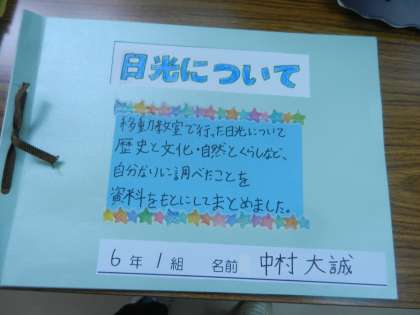 日光について
移動教室で行った日光について
歴史と文化・自然とくらしなど、
自分なりに調べたことを
資料をもとにしてまとめました。
6年1組 名前 中村大誠